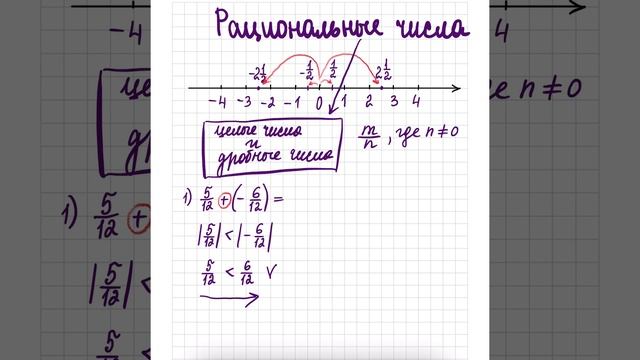 Рациональные числа
-2½ -½ ½ 2½
-4 -3 -2 -1 0 1 2 3 4
целые числа
и
дробные числа
m/n, где n≠0
1) 5/12 + (- 6/12) =
|5/12| < |- 6/12|
5/12 < 6/12 V